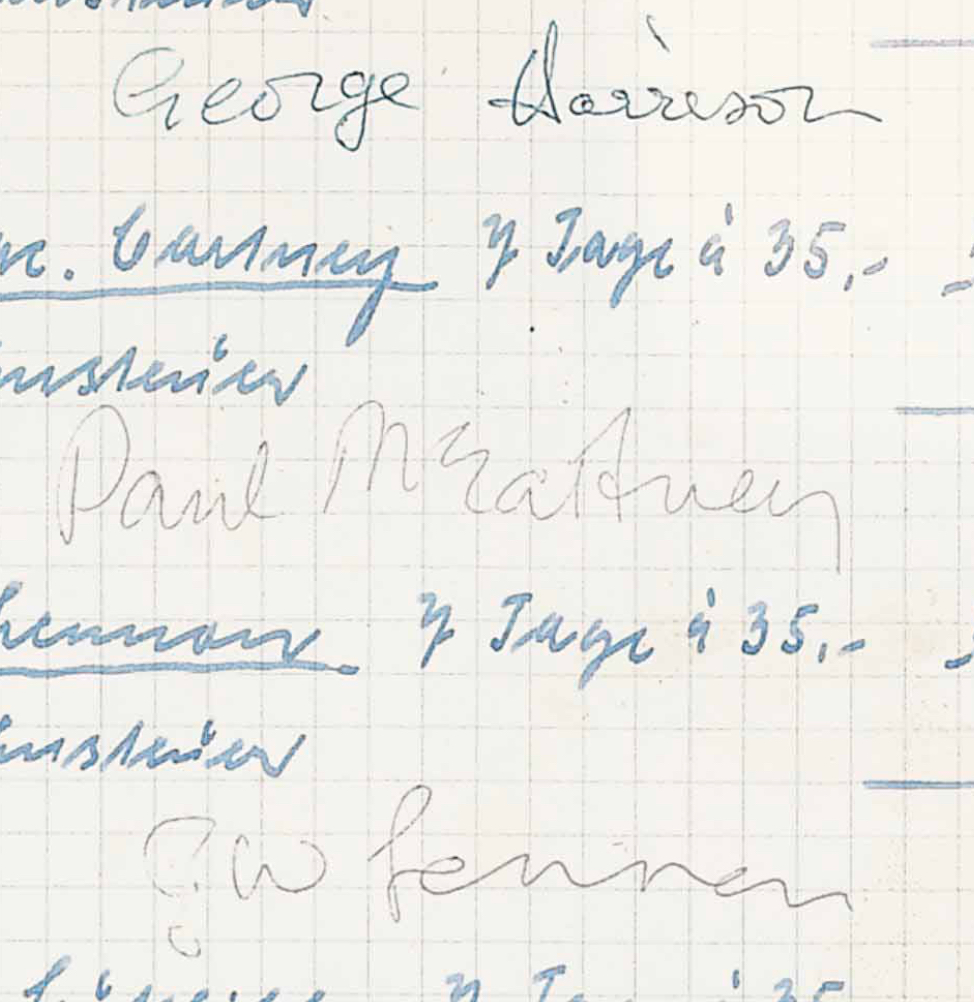 George Harrison
c. Cartney 7 Tage à 35,-
nsteuer
Paul McCartney
Lennon 7 Tage à 35,-
nsteuer
J W Lennon
7 Tage à 35